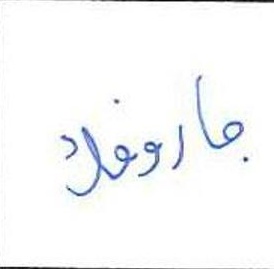 جاروفلاد